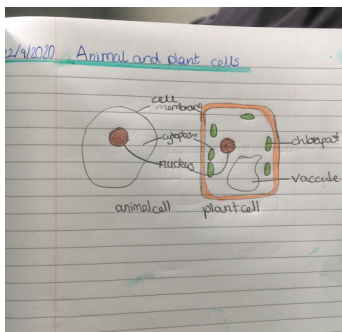 2/9/2020 Animal and plant cells
cell
membrane
cytoplasm
nucleus
chloroplast
vaccule
animal cell plant cell